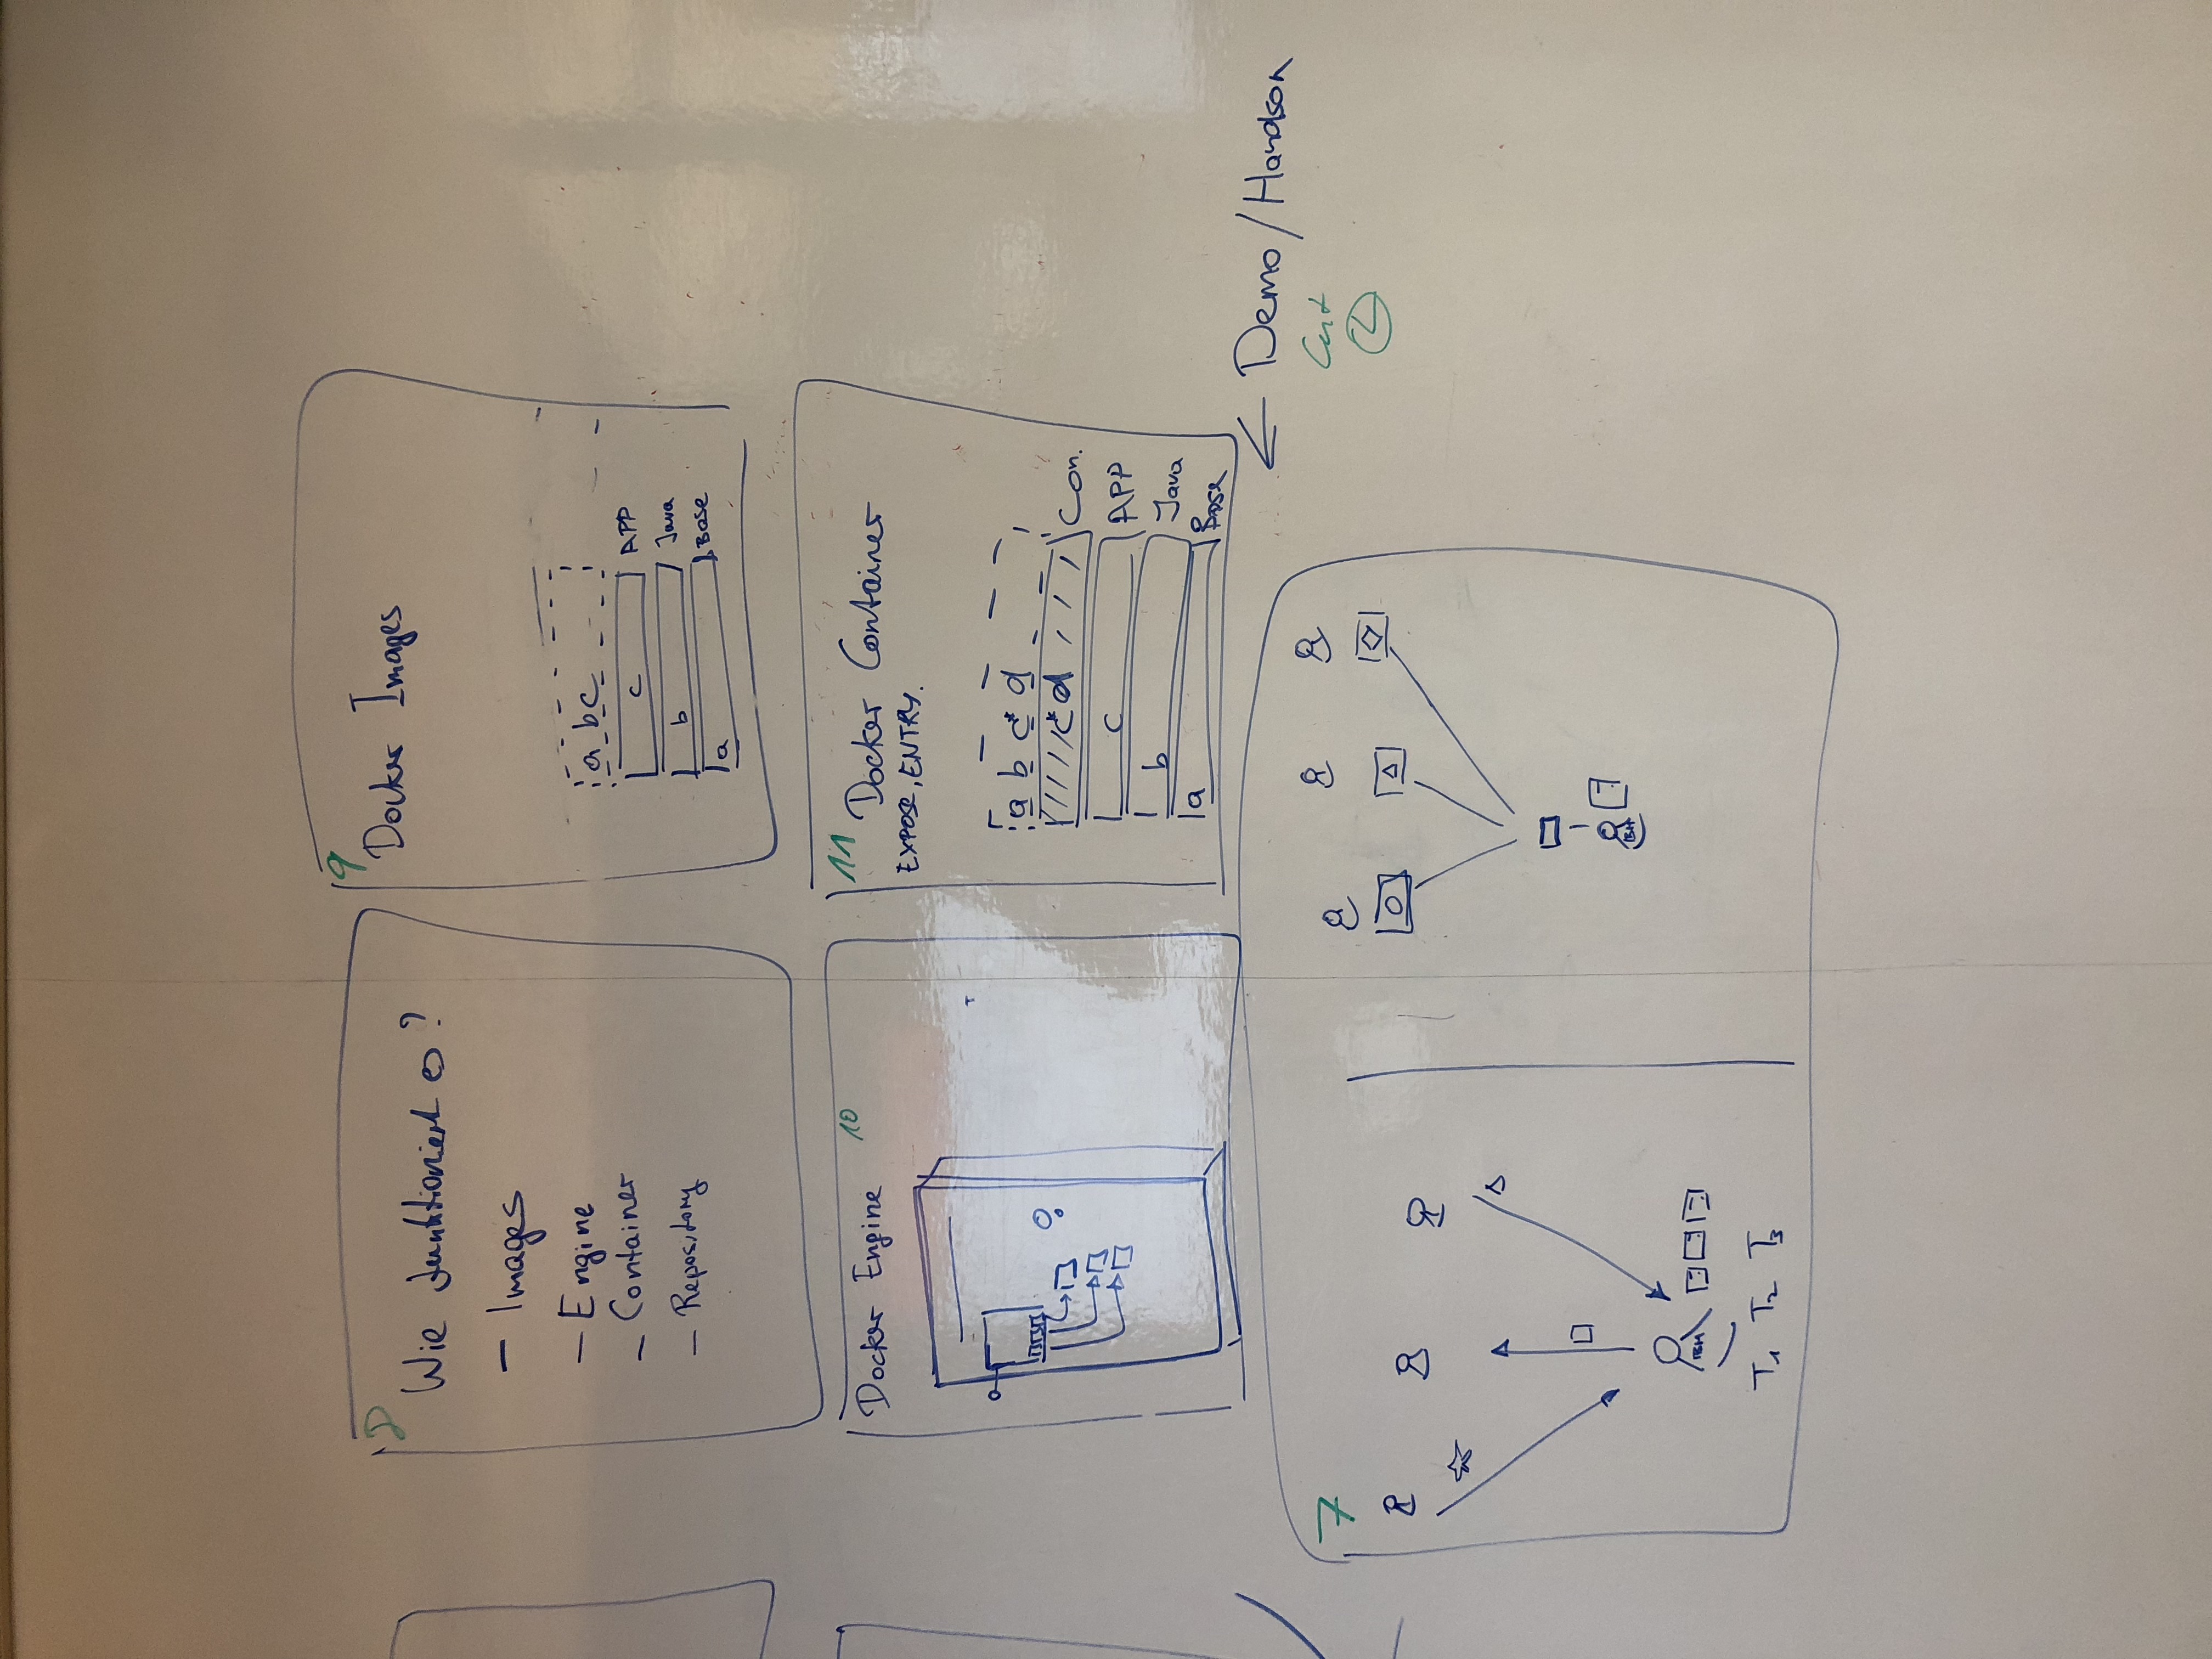 8
Wie funktioniert es?
- Images
- Engine
- Container
- Repository
9
Docker Images
a bc
c APP
b Java
a Base
Docker Engine 10
11 Docker Container
EXPOSE, ENTRY.
a b c* d
c* d Con.
c APP
b Java
a Base
← Demo/Handson
7
T1 T2 T3